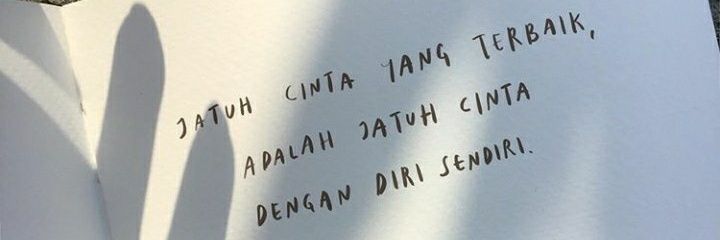 JATUH CINTA YANG TERBAIK,
ADALAH JATUH CINTA
DENGAN DIRI SENDIRI.